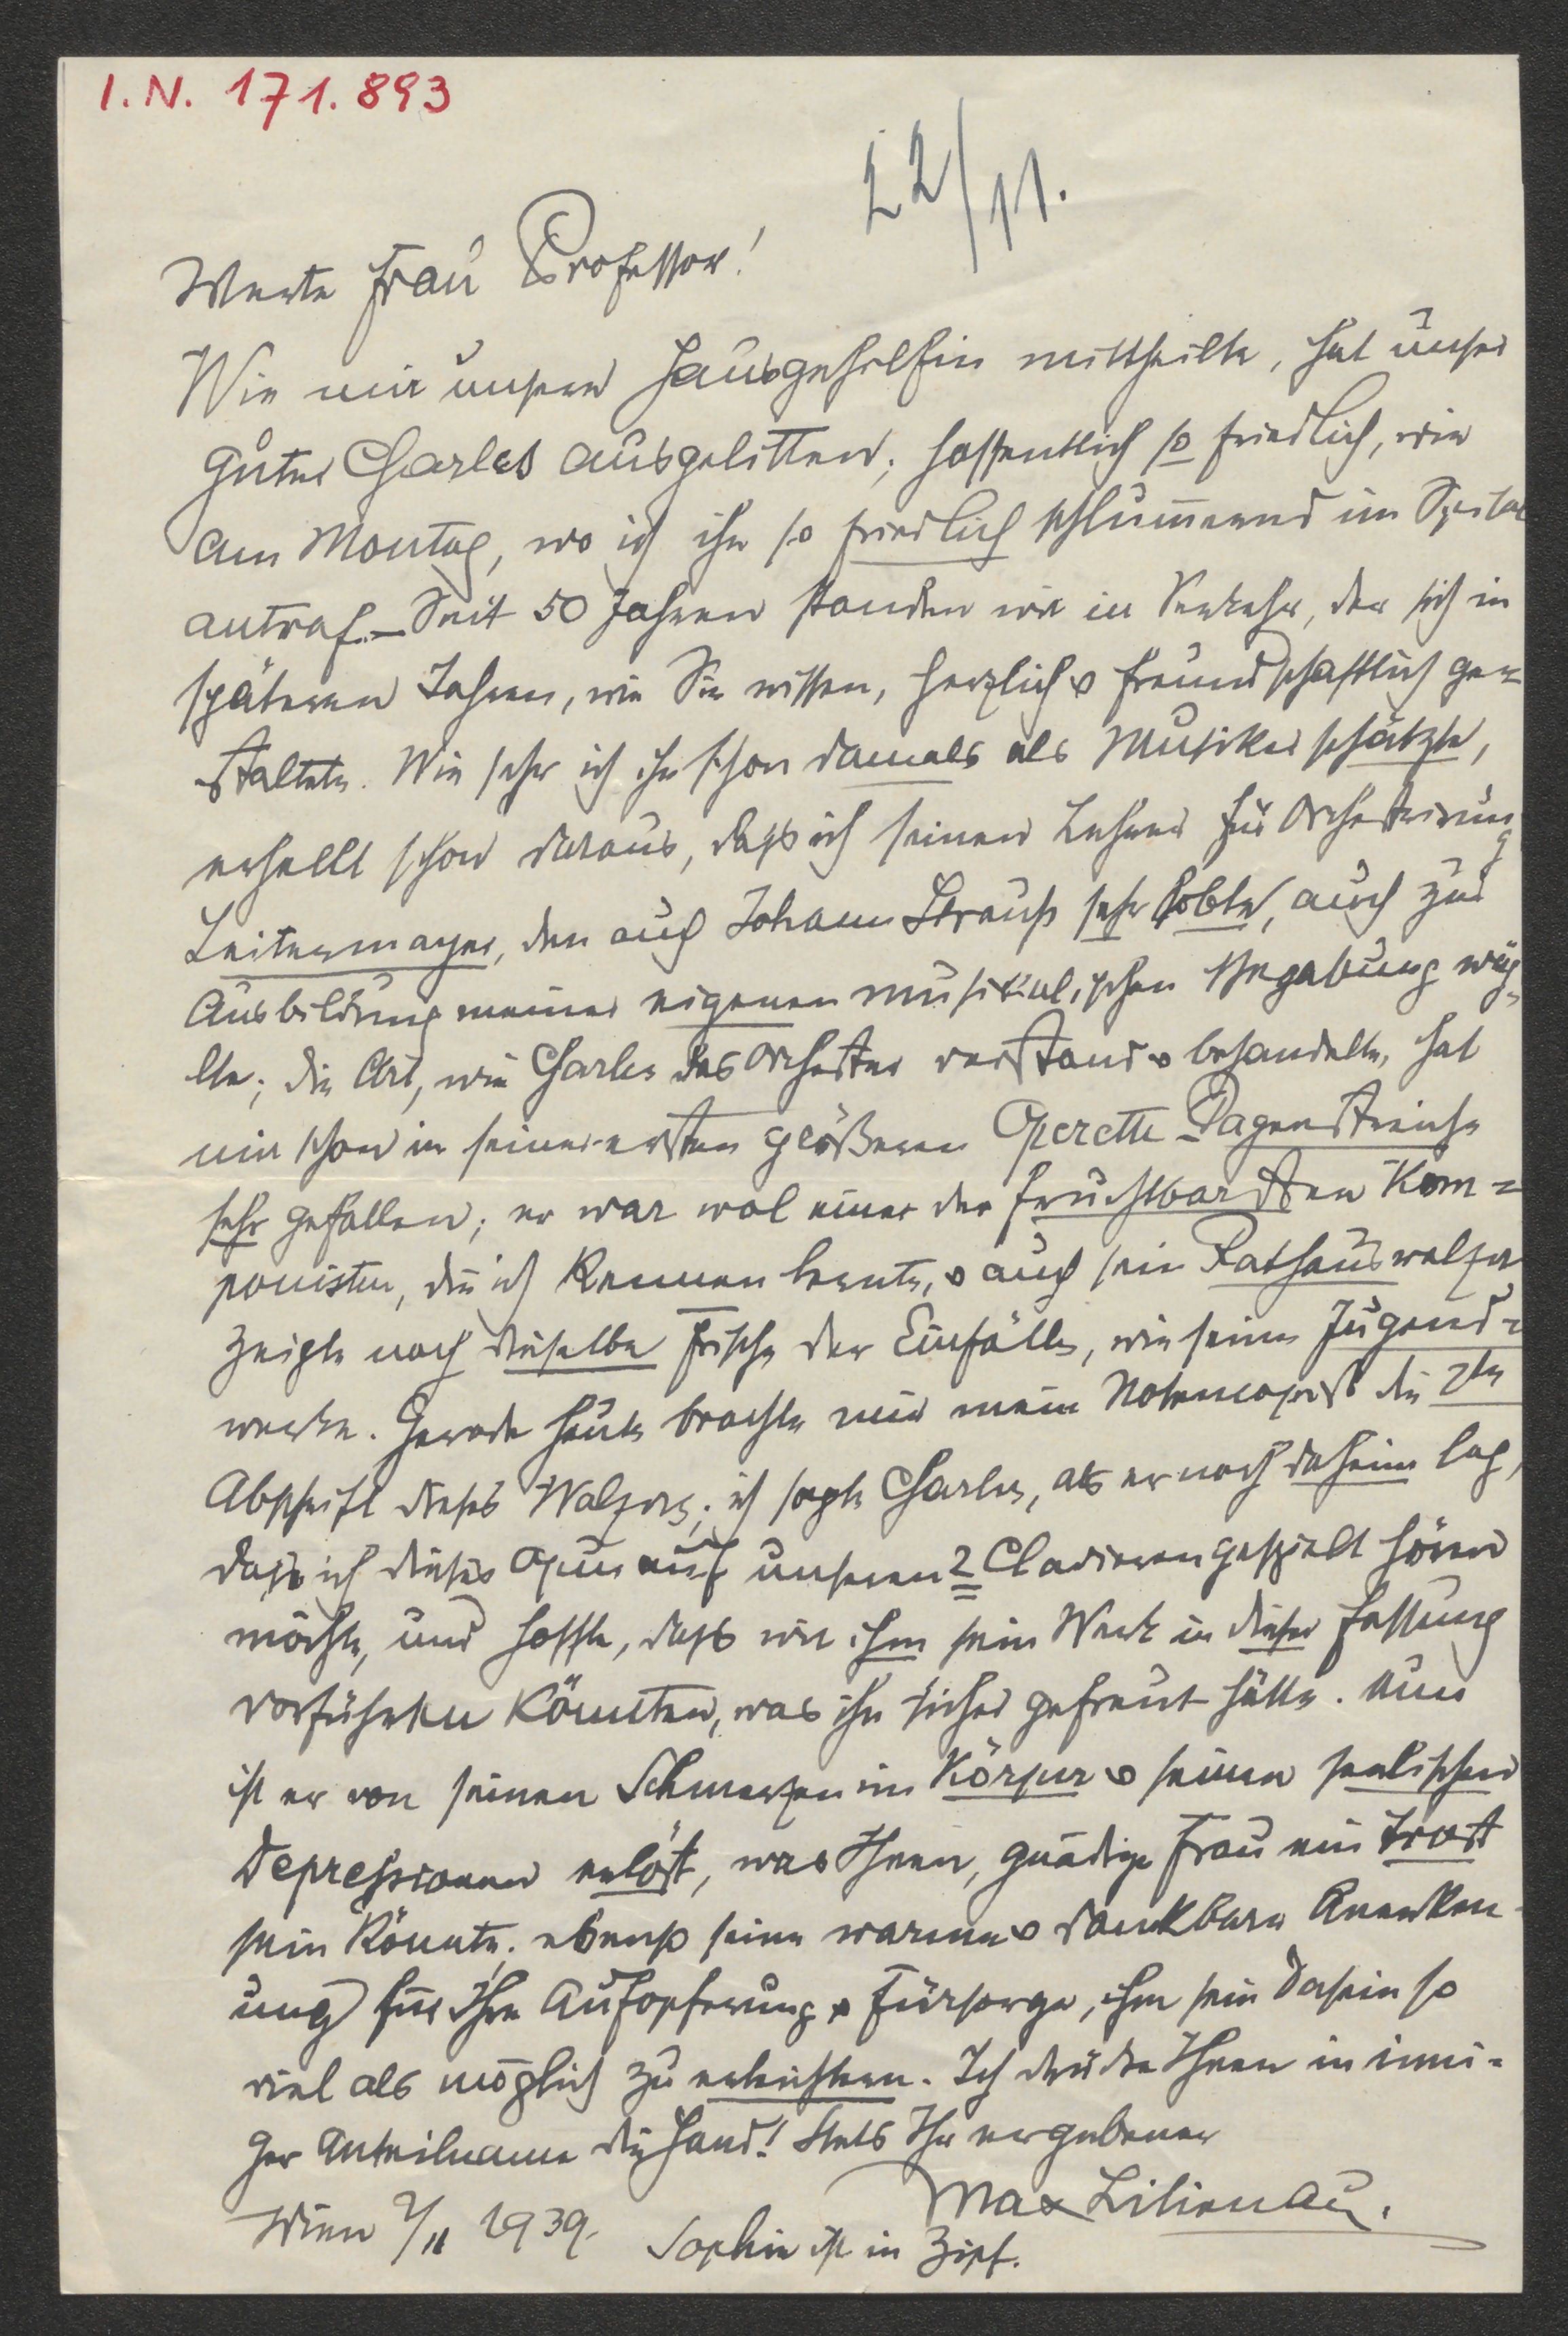 I.N. 171.893
22/11.
Werte Frau Professor!
Wie mir unsere Hausgehilfin mittheilte, hat unser
guter Charles ausgelitten; hoffentlich so friedlich, wie
am Montag, wo ich ihn so friedlich schlum̅ernd im Spital
antraf. – Seit 50 Jahren standen wir in Verkehr, der sich in
späteren Jahren, wie Sie wissen, herzlich & freundschaftlich ge=
staltete. Wie sehr ich ihn schon damals als Musiker schätzte,
erhellt schon daraus, daß ich seinen Lehrer für Orchestrirung
Leitermayer, den auch Johann Strauß sehr lobte, auch zur
Ausbildung meiner eigenen musikalischen Begabung wäh=
lte; die Art, wie Charles das Orchester verstand & behandelte, hat
mir schon in seiner ersten größeren Operette Pagenstreiche
sehr gefallen; er war wol einer der fruchtbarsten Kom=
ponisten, die ich kennen lernte, & auch sein Rathauswalzer
zeigte noch dieselbe Frische der Einfälle, wie seine Jugend=
werke. Gerade heute brachte mir mein Notencopist die 2te
Abschrift dieses Walzers; ich sagte Charles, als er noch daheim lag,
dass ich dieses Opus auf unseren 2 Clavieren gespielt hören
möchte, und hoffte, dass wir ihm sein Werk in dieser Fassung
vorführen könnten, was ihn sicher gefreut hätte. Nun
ist er von seinen Schmerzen im Körper & seinen seelischen
Depressionen erlöst, was Ihnen, gnädige Frau ein Trost
sein könnte, ebenso seine warme & dankbare Anerken-
ung für Ihre Aufopferung & Fürsorge, ihm sein Dasein so
viel als möglich zu erleichtern. Ich drücke Ihnen in inni=
ger Anteilname die Hand! Stets Ihr ergebener
Max Lilienau.
Wien 2/11 1939. Sophie ist in Zipf.